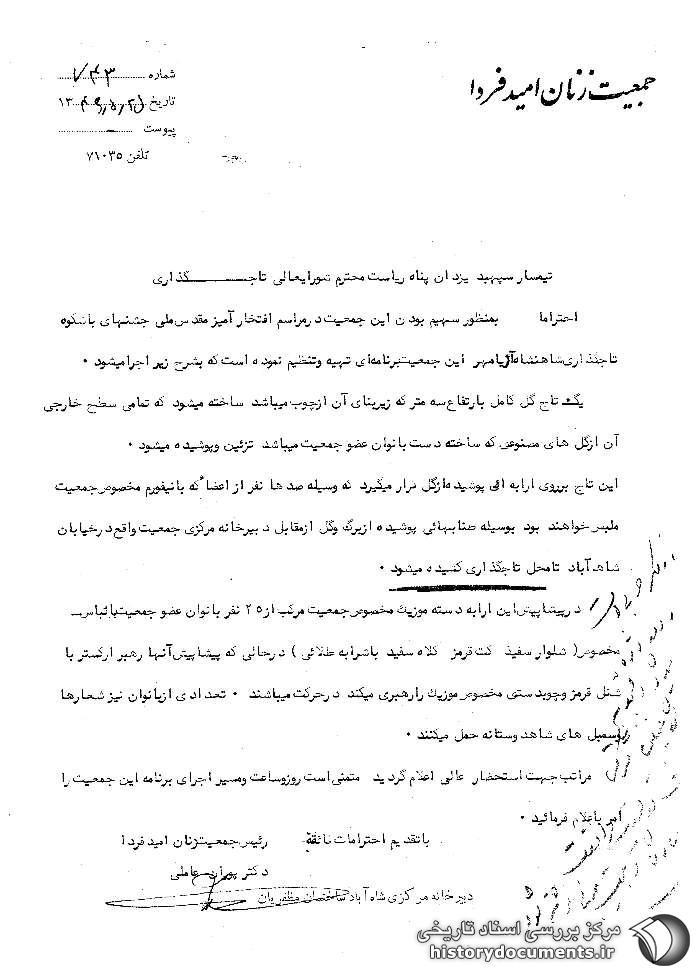 جمعیت زنان امید فردا
شماره ۷۴۳
تاریخ ۱۳
پیوست
تلفن ۷۱۰۳۵
تیمسار سپهبد یزدان پناه ریاست محترم شورایعالی تاجگذاری
احتراما بمنظور سهیم بودن این جمعیت درمراسم افتخار آمیز مقدس ملی جشنهای باشکوه
تاجگذاری شاهنشاه آریامهر این جمعیت برنامه‌ای تهیه وتنظیم نموده است که بشرح زیر اجرا میشود ۰
یک تاج گل کامل بارتفاع سه متر که زیربنای آن ازچوب میباشد ساخته میشود که تمامی سطح خارجی
آن ازگل های مصنوعی که ساخته دست بانوان عضو جمعیت میباشد تزئین وپوشیده میشود ۰
این تاج برروی ارابه ای پوشیده ازگل قرار میگیرد که وسیله صدها نفر از اعضاء که بانیفورم مخصوص جمعیت
ملبس خواهند بود بوسیله طنابهائی پوشیده ازبرگ وگل ازمقابل دبیرخانه مرکزی جمعیت واقع درخیابان
شاه آباد تامحل تاجگذاری کشیده میشود ۰
درپیشاپیش این ارابه دسته موزیک مخصوص جمعیت مرکب از ۲۵ نفر بانوان عضو جمعیت بالباس
مخصوص ( شلوار سفید کت قرمز کلاه سفید باشرابه طلائی ) درحالی که پیشاپیش آنها رهبر ارکستر با
شنل قرمز وچوبدستی مخصوص موزیک رارهبری میکند درحرکت میباشند ۰ تعدادی ازبانوان نیز شعارها
وسمبل های شاهدوستانه حمل میکنند ۰
مراتب جهت استحضار عالی اعلام گردید متمنی است روزوساعت ومسیر اجرای برنامه این جمعیت را
امر باعلام فرمائید ۰
باتقدیم احترامات فائقه رئیس جمعیت زنان امید فردا
دکتر پوران عاملی
دبیرخانه مرکزی شاه آباد ساختمان مظفریان
مرکز بررسی اسناد تاریخی
historydocuments.ir